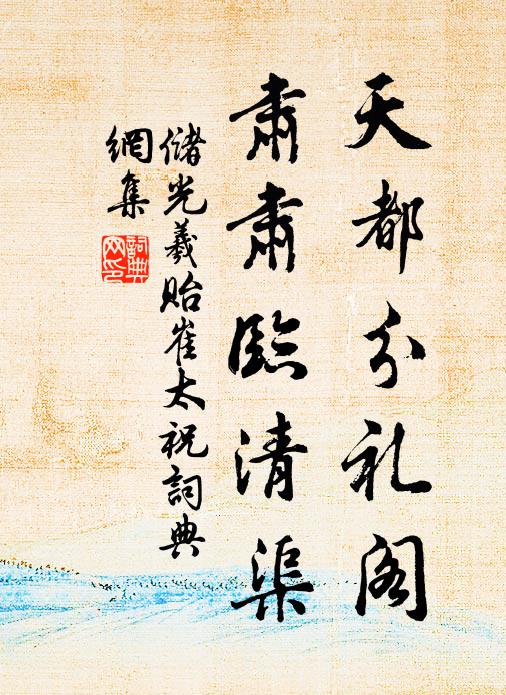 天都分礼阁
肃肃臨清渠
儲光羲貽崔太祝詞典
網集
詞典網印